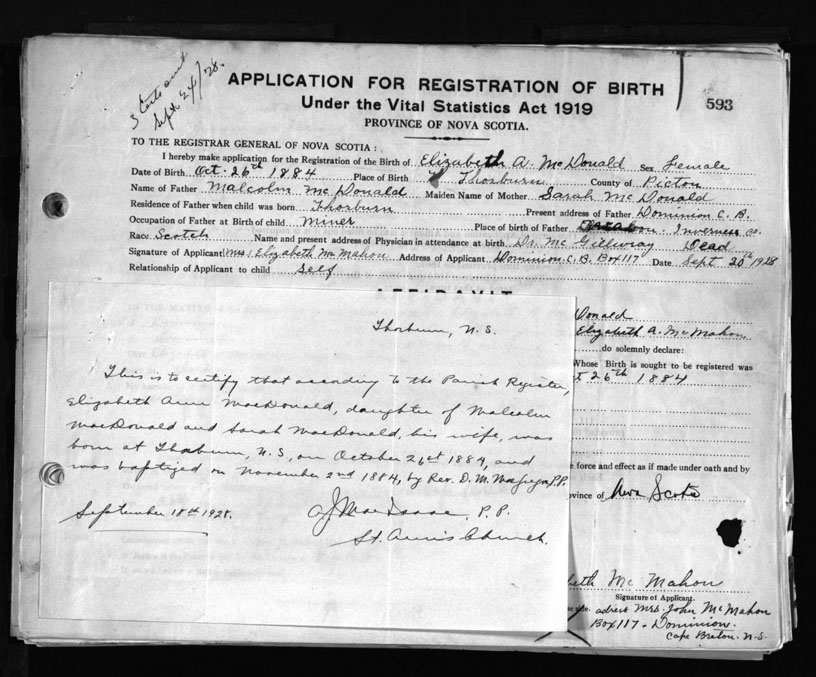 3 Certs sent
Sept 24/28.
APPLICATION FOR REGISTRATION OF BIRTH
Under the Vital Statistics Act 1919
PROVINCE OF NOVA SCOTIA.
593
TO THE REGISTRAR GENERAL OF NOVA SCOTIA:
I hereby make application for the Registration of the Birth of Elizabeth A. McDonald Sex Female
Date of Birth Oct. 26th 1884 Place of Birth Thorburn County of Pictou
Name of Father Malcolm McDonald Maiden Name of Mother Sarah McDonald
Residence of Father when child was born Thorburn Present address of Father Dominion C. B.
Occupation of Father at Birth of child Miner Place of birth of Father Inverness Co.
Race Scotch Name and present address of Physician in attendance at birth Dr. McGillivray Dead
Signature of Applicant (Mrs) Elizabeth McMahon Address of Applicant Dominion. C. B. Box 117 Date Sept 20th 1928
Relationship of Applicant to child Self
AFFIDAVIT
Donald
Elizabeth A. McMahon
do solemnly declare:
Whose Birth is sought to be registered was
t 26th 1884
e force and effect as if made under oath and by
ovince of Nova Scotia
beth McMahon
Signature of Applicant.
se side. adress Mrs. John McMahon
Box 117 - Dominion.
Cape Breton. N.S.
Thorburn, N. S.
This is to certify that according to the Parish Register,
Elizabeth Ann MacDonald, daughter of Malcolm
MacDonald and Sarah MacDonald, his wife, was
born at Thorburn, N. S., on October 26th 1884, and
was baptized on November 2nd 1884, by Rev. D. M. MacGregor, P.P.
September 18th 1928.
A J MacIsaac, P. P.
St. Ann's Church.